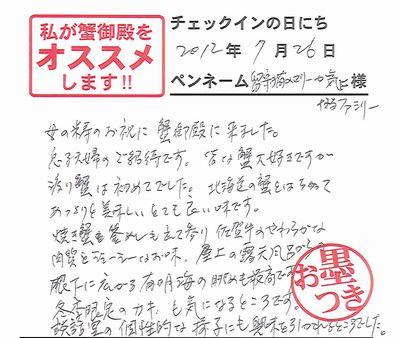 私が蟹御殿を
オススメ
します!!
チェックインの日にち
2012年7月26日
ペンネーム 気 様
なるファミリー
母の寿のお祝に蟹御殿に来ました。
息子夫婦のご招待です。皆な蟹大好きですが
渡り蟹は初めてでした。北海道の蟹とはちがって
あっさりと美味しいとても良い味です。
焼き蟹も釜めしも 佐賀牛のやわらかな
肉質とジューシーなお味。屋上の露天風呂からの
眼下に広がる有明海の眺めも最高です
冬季限定のカキも気になるところです。
談話室の個性的な椅子にも興味を引かれるところでした。
お墨つき